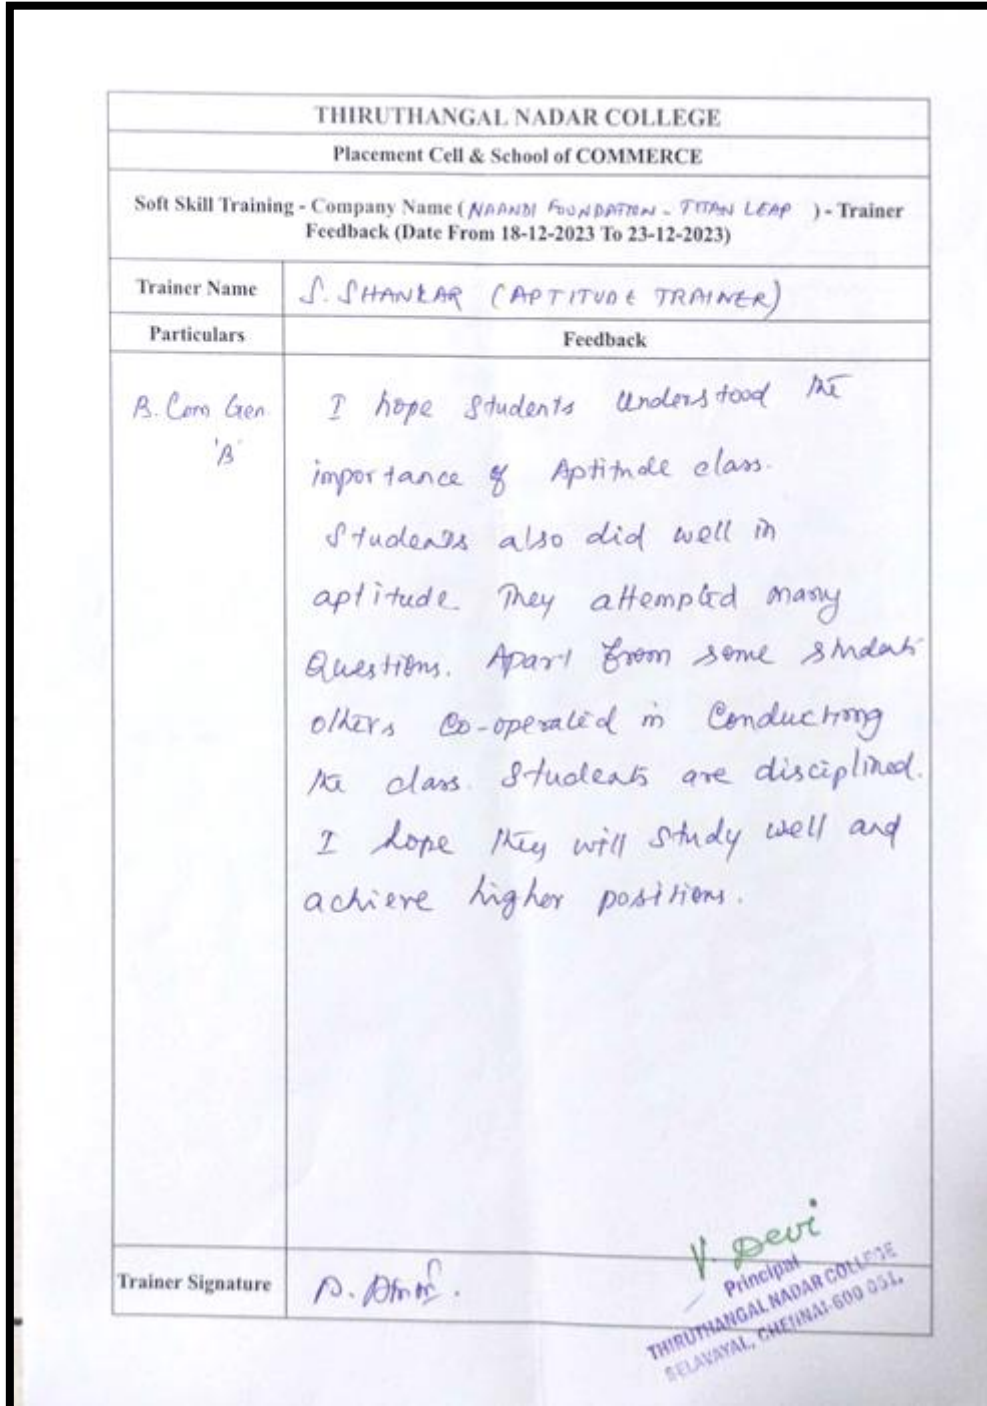 THIRUTHANGAL NADAR COLLEGE
Placement Cell & School of COMMERCE
Soft Skill Training - Company Name ( NAANDI FOUNDATION - TITAN LEAP ) - Trainer
Feedback (Date From 18-12-2023 To 23-12-2023)
Trainer Name
S. SHANKAR (APTITUDE TRAINER)
Particulars
Feedback
B. Com Gen
'B'
I hope students understood the
importance of Aptitude class.
Students also did well in
aptitude They attempted many
Questions. Apart from some students
others Co-operated in Conducting
the class. Students are disciplined.
I hope they will study well and
achieve higher positions.
Trainer Signature
V. Devi
Principal
THIRUTHANGAL NADAR COLLEGE
SELAVAYAL, CHENNAI-600 051.